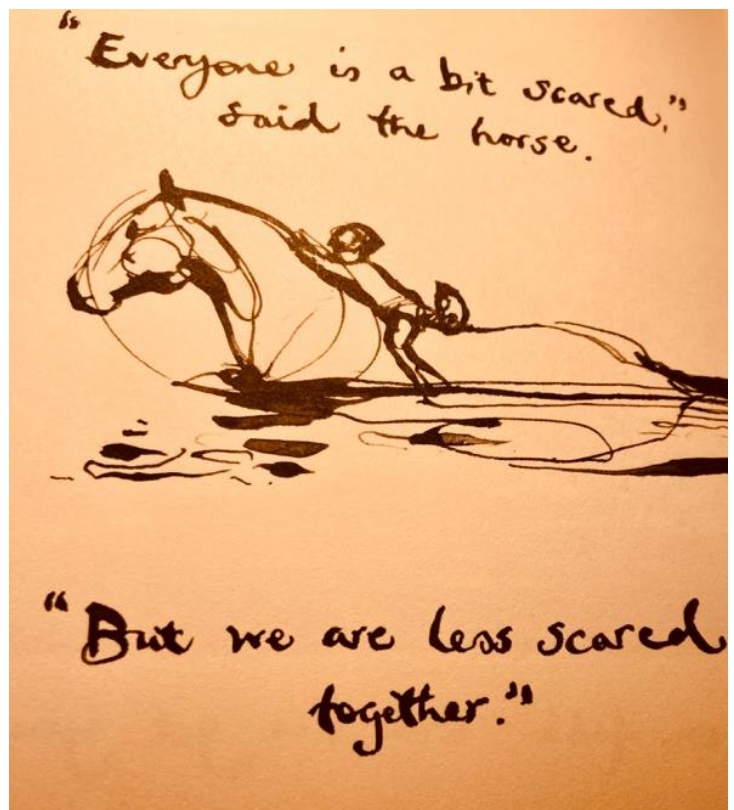 “Everyone is a bit scared,”
said the horse.
“But we are less scared
together.”